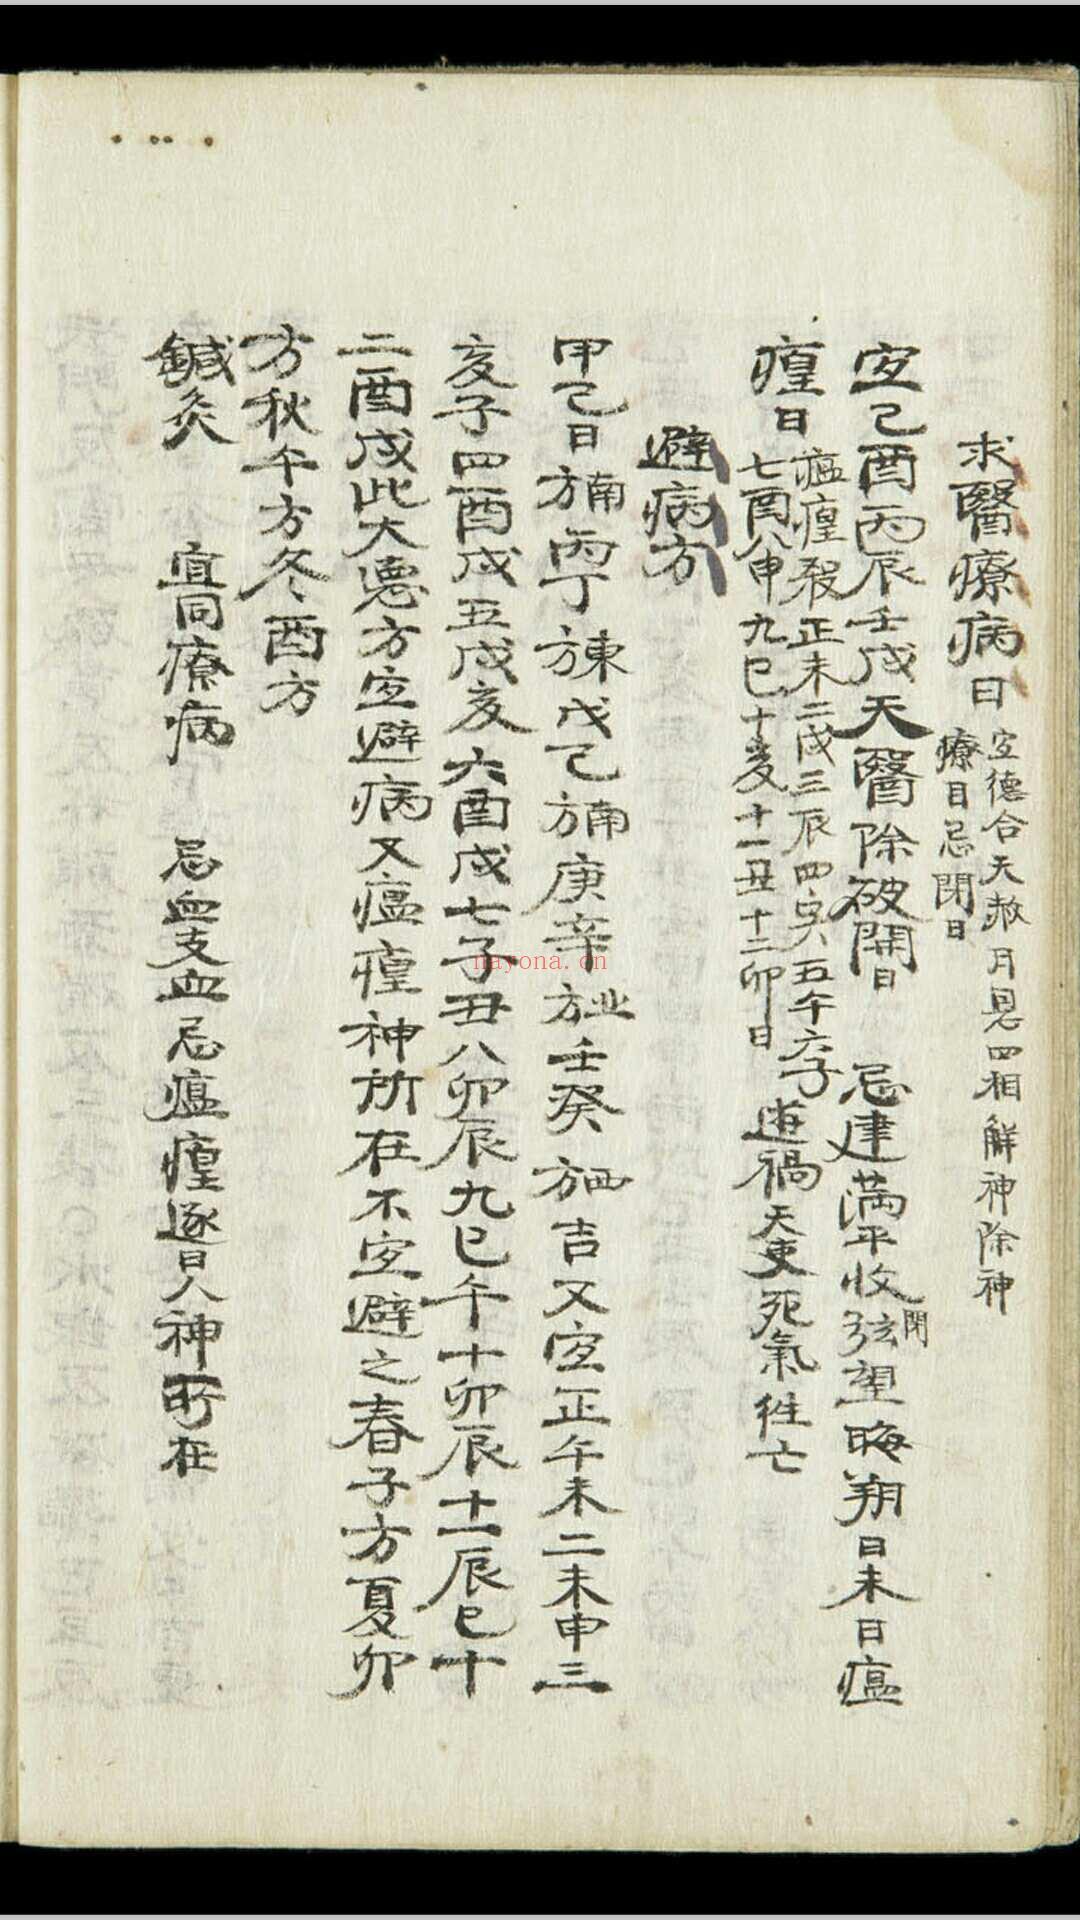 求醫療病日 宜德合天赦月恩四相解神除神
療目忌閉日
宜己酉丙辰壬戌天醫除破開日 忌建滿平收閉弦望晦朔日未日瘟
瘽日 瘟瘽殺正未二戌三辰四寅五午六子
七酉八申九巳十亥十一丑十二卯日 遊禍天吏死氣往亡
避病方
甲乙日方南丙丁方東戊己方南庚辛方北壬癸方西吉又宜正午未二未申三
亥子四酉戌五戌亥六酉戌七子丑八卯辰九巳午十卯辰十一辰巳十
二酉戌此大悳方宜避病又瘟瘽神所在不宜避之春子方夏卯
方秋午方冬酉方
鍼灸 宜同療病 忌血支血忌瘟瘽逐日人神所在
nayona.cn